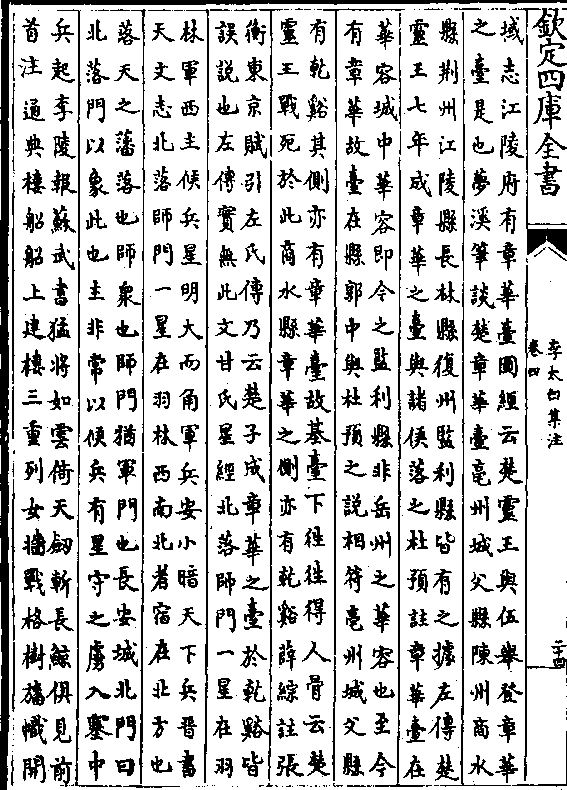 欽定四庫全書
李太白集注
卷四
二十四
域志江陵府有章華臺圖經云楚靈王與伍舉登章華
之臺是也夢溪筆談楚章華臺亳州城父縣陳州商水
縣荆州江陵縣長林縣復州監利縣皆有之據左傳楚
靈王七年成章華之臺與諸侯落之杜預註章華臺在
華容城中華容即今之監利縣非岳州之華容也至今
有章華故臺在縣郭中與杜預之說相符亳州城父縣
有乾谿其側亦有章華臺故基臺下往往得人骨云楚
靈王戰死於此商水縣章華之側亦有乾谿薛綜註張
衡東京賦引左氏傳乃云楚子成章華之臺於乾谿皆
誤說也左傳實無此文甘氏星經北落師門一星在羽
林軍西主候兵星明大而角軍兵安小暗天下兵晉書
天文志北落師門一星在羽林西南北者宿在北方也
落天之藩落也師衆也師門猶軍門也長安城北門曰
北落門以象此也主非常以候兵有星守之虜入塞中
兵起李陵報蘇武書猛將如雲倚天劒斬長鯨俱見前
首注通典樓船船上建樓三重列女牆戰格樹旛幟開